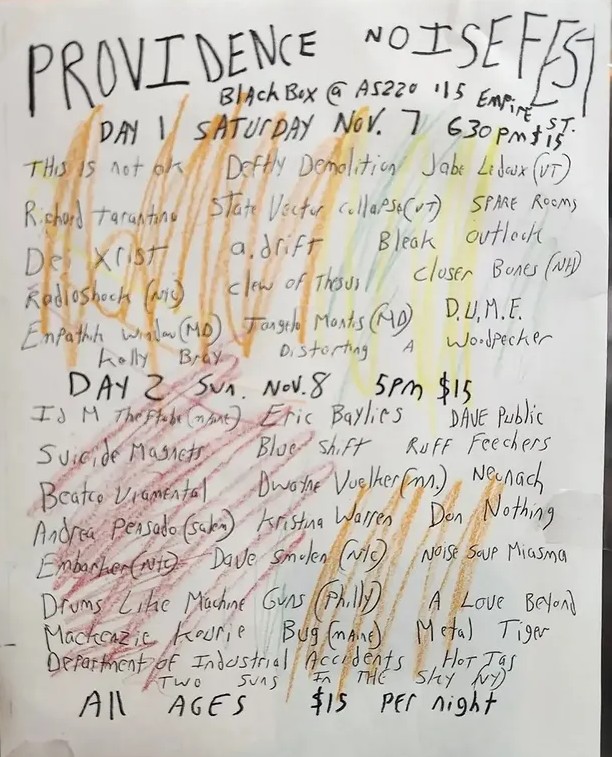 PROVIDENCE NOISE FEST
BlAch Box @ AS220 115 EMPIRE ST.
DAY 1 SATURDAY NOV. 7 630 pm $15
THIS IS not ok Deftly Demolition Jabe Ledoux (VT)
Richard tarantino State Vector collapse (VT) SPARE ROOMS
Der Xrist a.drift Bleak outlook
Radioshock (NYC) clew of Thesus Closer Bones (NH)
Empathin window (MD) Tangelo Mantis (MD) D.U.M.E.
Kolly Bray Distorting A Woodpecker
DAY 2 Sun. Nov. 8 5pm $15
Id M Theftable (mAine) Eric Baylies DAVE Public
Suicide Magnets Blue Shift Ruff Feechers
Beatco Viamental Dwayne Vuelker (mn.) Neonach
Andrea Pensado (salem) Kristina Warren Don Nothing
Embarker (NYC) Dave Smolen (NYC) NOISE SOUP Miasma
Drums Like Machine Guns (Philly) A Love Beyond
Mackenzie Kourie Bug (mAine) Metal Tiger
Department of Industrial Accidents HoT Tag
TWO SUNS IN THE Sky NY)
All AGES $15 PER night